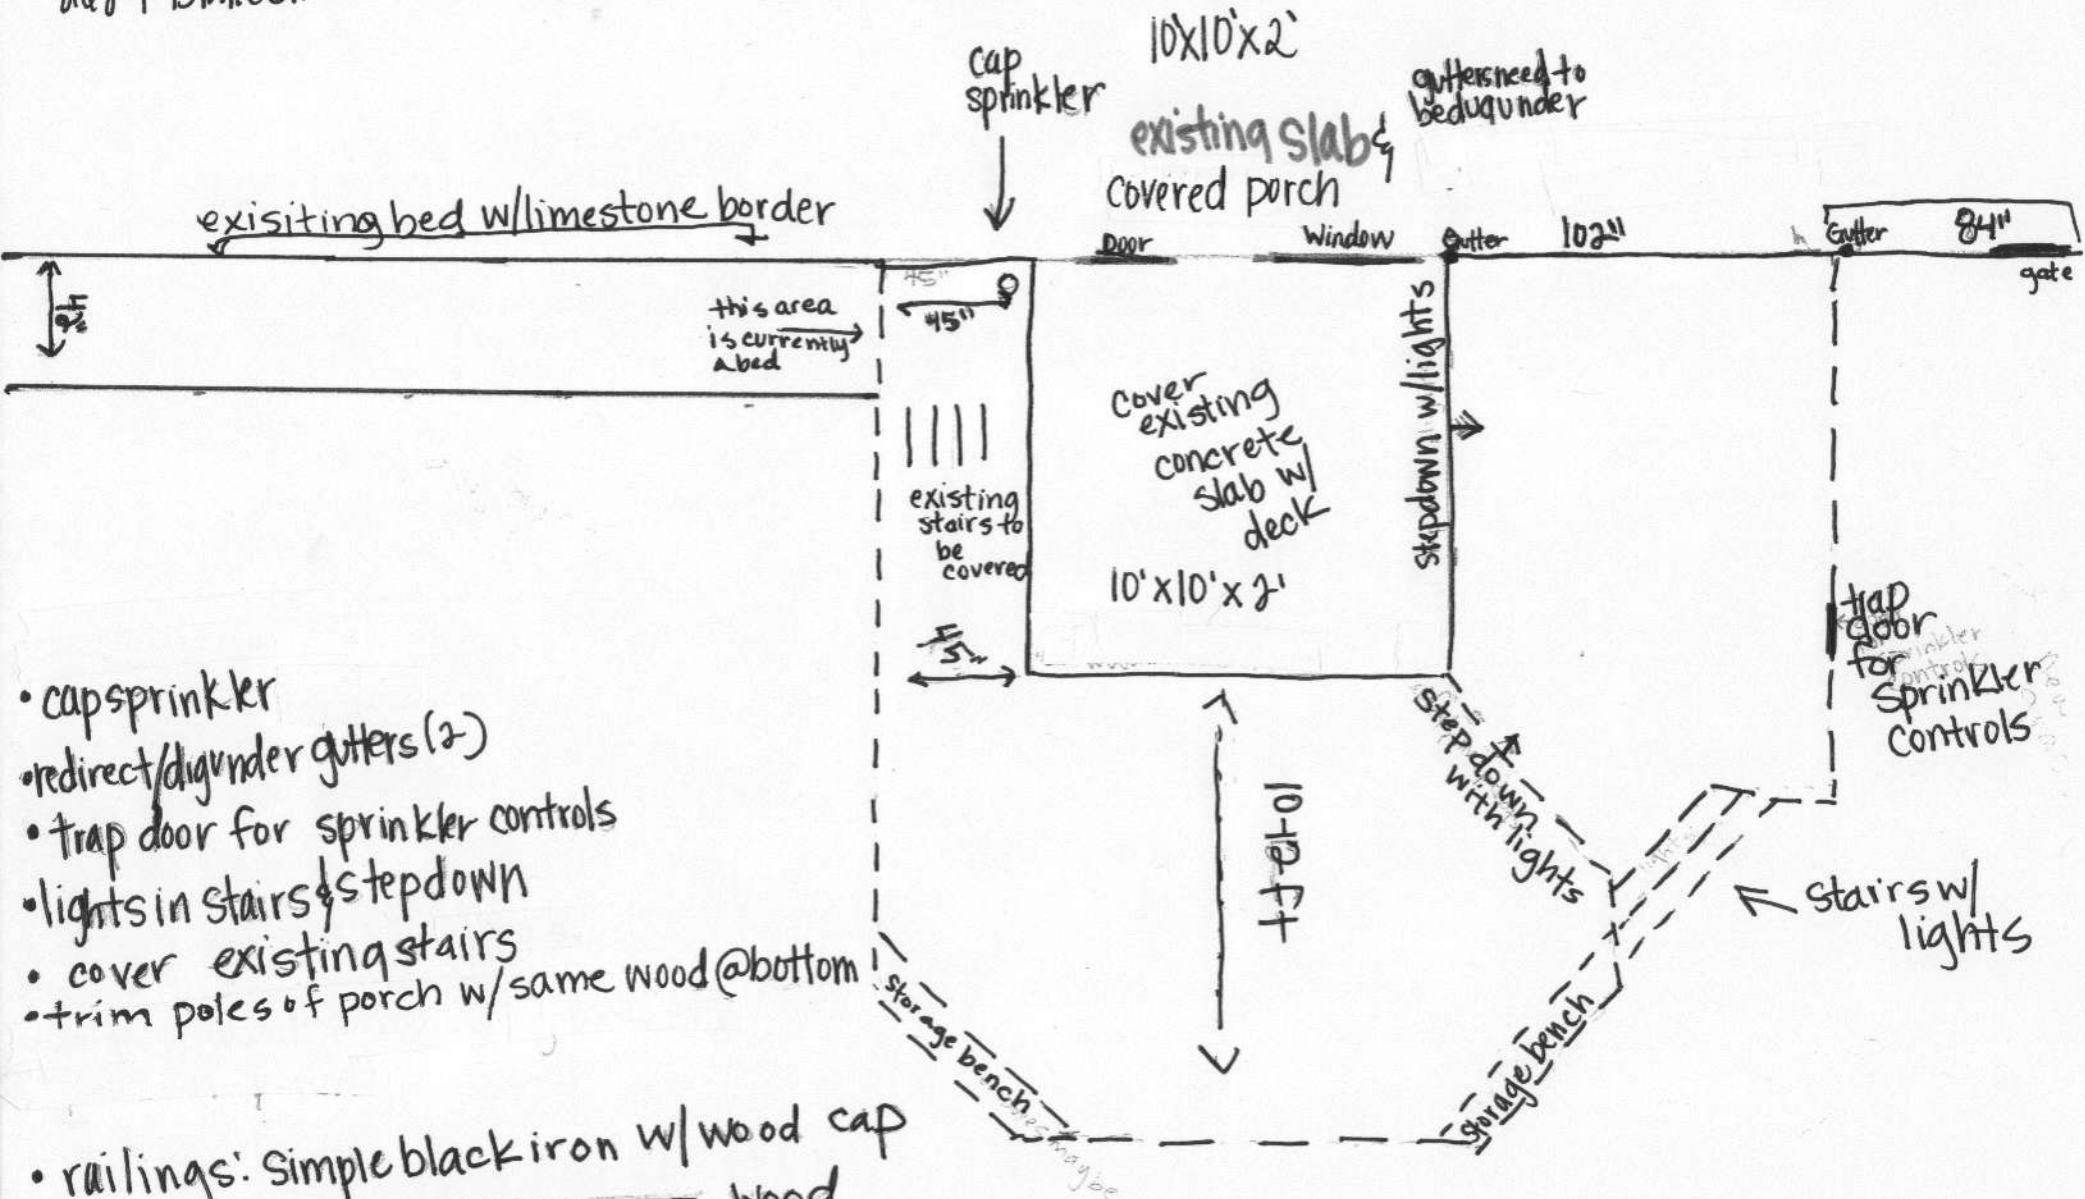 10'x10'x2'
cap
sprinkler
gutters need to
be dug under
existing slab &
covered porch
exisiting bed w/limestone border
Door
Window
Gutter
102"
Gutter
84"
gate
45"
45"
this area
is currently
a bed
stepdown w/lights
cover
existing
concrete
slab w/
deck
10'x10'x2'
existing
stairs to
be
covered
45"
trap
door
for
sprinkler
controls
Step down
with lights
10-12 ft
stairs w/
lights
storage bench
storage bench
• cap sprinkler
• redirect/dig under gutters (2)
• trap door for sprinkler controls
• lights in stairs & stepdown
• cover existing stairs
• trim poles of porch w/ same wood @ bottom
• railings: simple black iron w/ wood cap
wood